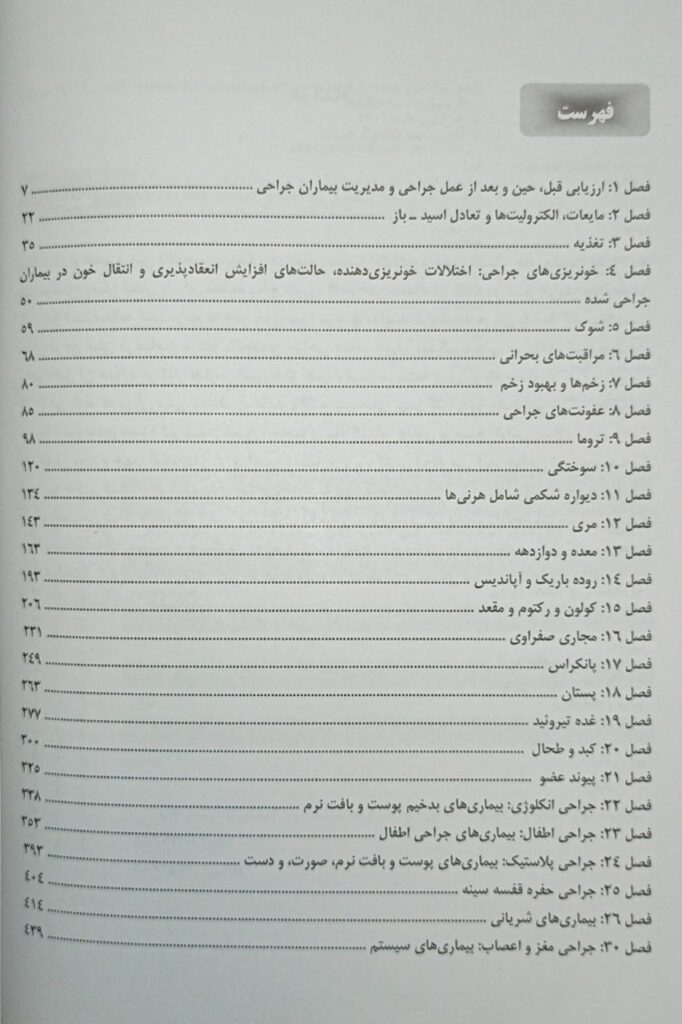 فهرست
فصل ۱: ارزیابی قبل، حین و بعد از عمل جراحی و مدیریت بیماران جراحی ........ ۷
فصل ۲: مایعات، الکترولیت‌ها و تعادل اسید ـ باز ........ ۲۲
فصل ۳: تغذیه ........ ۳۵
فصل ٤: خونریزی‌های جراحی: اختلالات خونریزی‌دهنده، حالت‌های افزایش انعقادپذیری و انتقال خون در بیماران
جراحی شده ........ ۵۰
فصل ۵: شوک ........ ۵۹
فصل ٦: مراقبت‌های بحرانی ........ ٦۸
فصل ۷: زخم‌ها و بهبود زخم ........ ۸۰
فصل ۸: عفونت‌های جراحی ........ ۸۵
فصل ۹: تروما ........ ۹۸
فصل ۱۰: سوختگی ........ ۱۲۰
فصل ۱۱: دیواره شکمی شامل هرنی‌ها ........ ۱۳٤
فصل ۱۲: مری ........ ۱٤۳
فصل ۱۳: معده و دوازدهه ........ ۱٦۳
فصل ۱٤: روده باریک و آپاندیس ........ ۱۹۳
فصل ۱۵: کولون و رکتوم و مقعد ........ ۲۰٦
فصل ۱٦: مجاری صفراوی ........ ۲۳۱
فصل ۱۷: پانکراس ........ ۲٤۹
فصل ۱۸: پستان ........ ۲٦۳
فصل ۱۹: غده تیروئید ........ ۲۷۷
فصل ۲۰: کبد و طحال ........ ۳۰۰
فصل ۲۱: پیوند عضو ........ ۳۲۵
فصل ۲۲: جراحی انکلوژی: بیماری‌های بدخیم پوست و بافت نرم ........ ۳۳۸
فصل ۲۳: جراحی اطفال: بیماری‌های جراحی اطفال ........ ۳۵۳
فصل ۲٤: جراحی پلاستیک: بیماری‌های پوست و بافت نرم، صورت، و دست ........ ۳۹۳
فصل ۲۵: جراحی حفره قفسه سینه ........ ٤۰٤
فصل ۲٦: بیماری‌های شریانی ........ ٤۱٤
فصل ۳۰: جراحی مغز و اعصاب: بیماری‌های سیستم ........ ٤۳۹